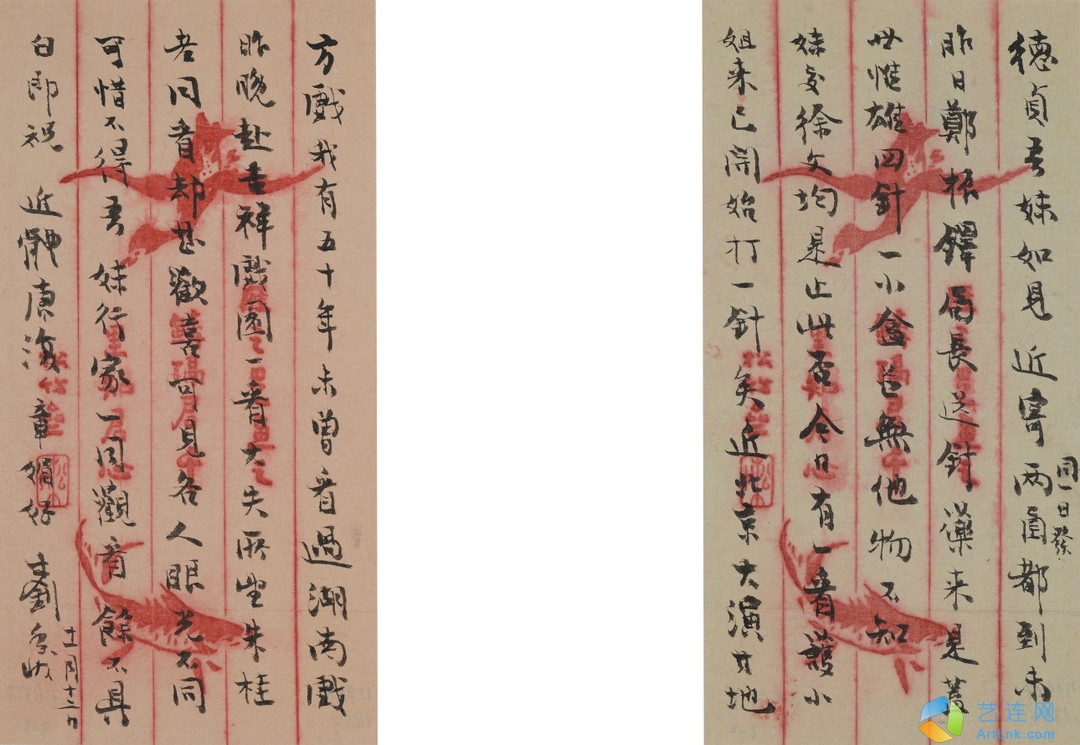 德貞吾妹如見 近寄兩函都到未
同一日發
昨日鄭振鐸局長送針藥来是蓋
世維雄四針一小盒 無他物 不知
妹交徐文均是止此否 今日有一看護小
姐来 已開始打一針矣 近北京大演 地
方戲 我有五十年未曾看過湖南戲
昨晚赴吉祥戲園一看 大失所望 朱桂
老同看 却甚歡喜 可見各人眼光不同
可惜不得吾 妹行家一同觀看 餘不具
白 即祝 近 康復 章 娟好 劉
十二月十二日
松竹
艺连网
Artlink.com